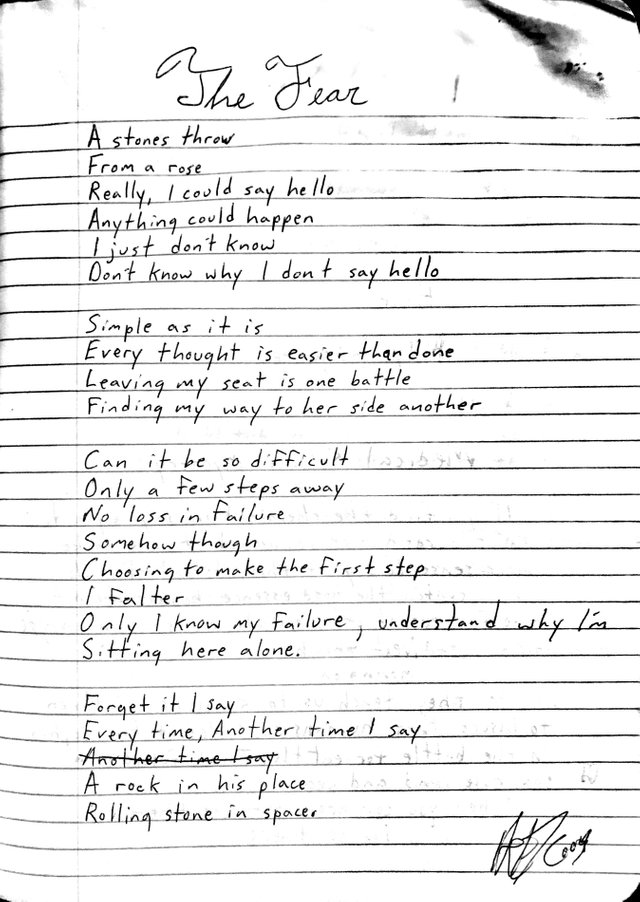 The Fear
A stones throw
From a rose
Really, I could say hello
Anything could happen
I just don't know
Don't know why I don't say hello
Simple as it is
Every thought is easier than done
Leaving my seat is one battle
Finding my way to her side another
Can it be so difficult
Only a few steps away
No loss in failure
Somehow though
Choosing to make the first step
I falter
Only I know my failure, understand why I'm
Sitting here alone.
Forget it I say
Every time, Another time I say
Another time I say
A rock in his place
Rolling stone in space.